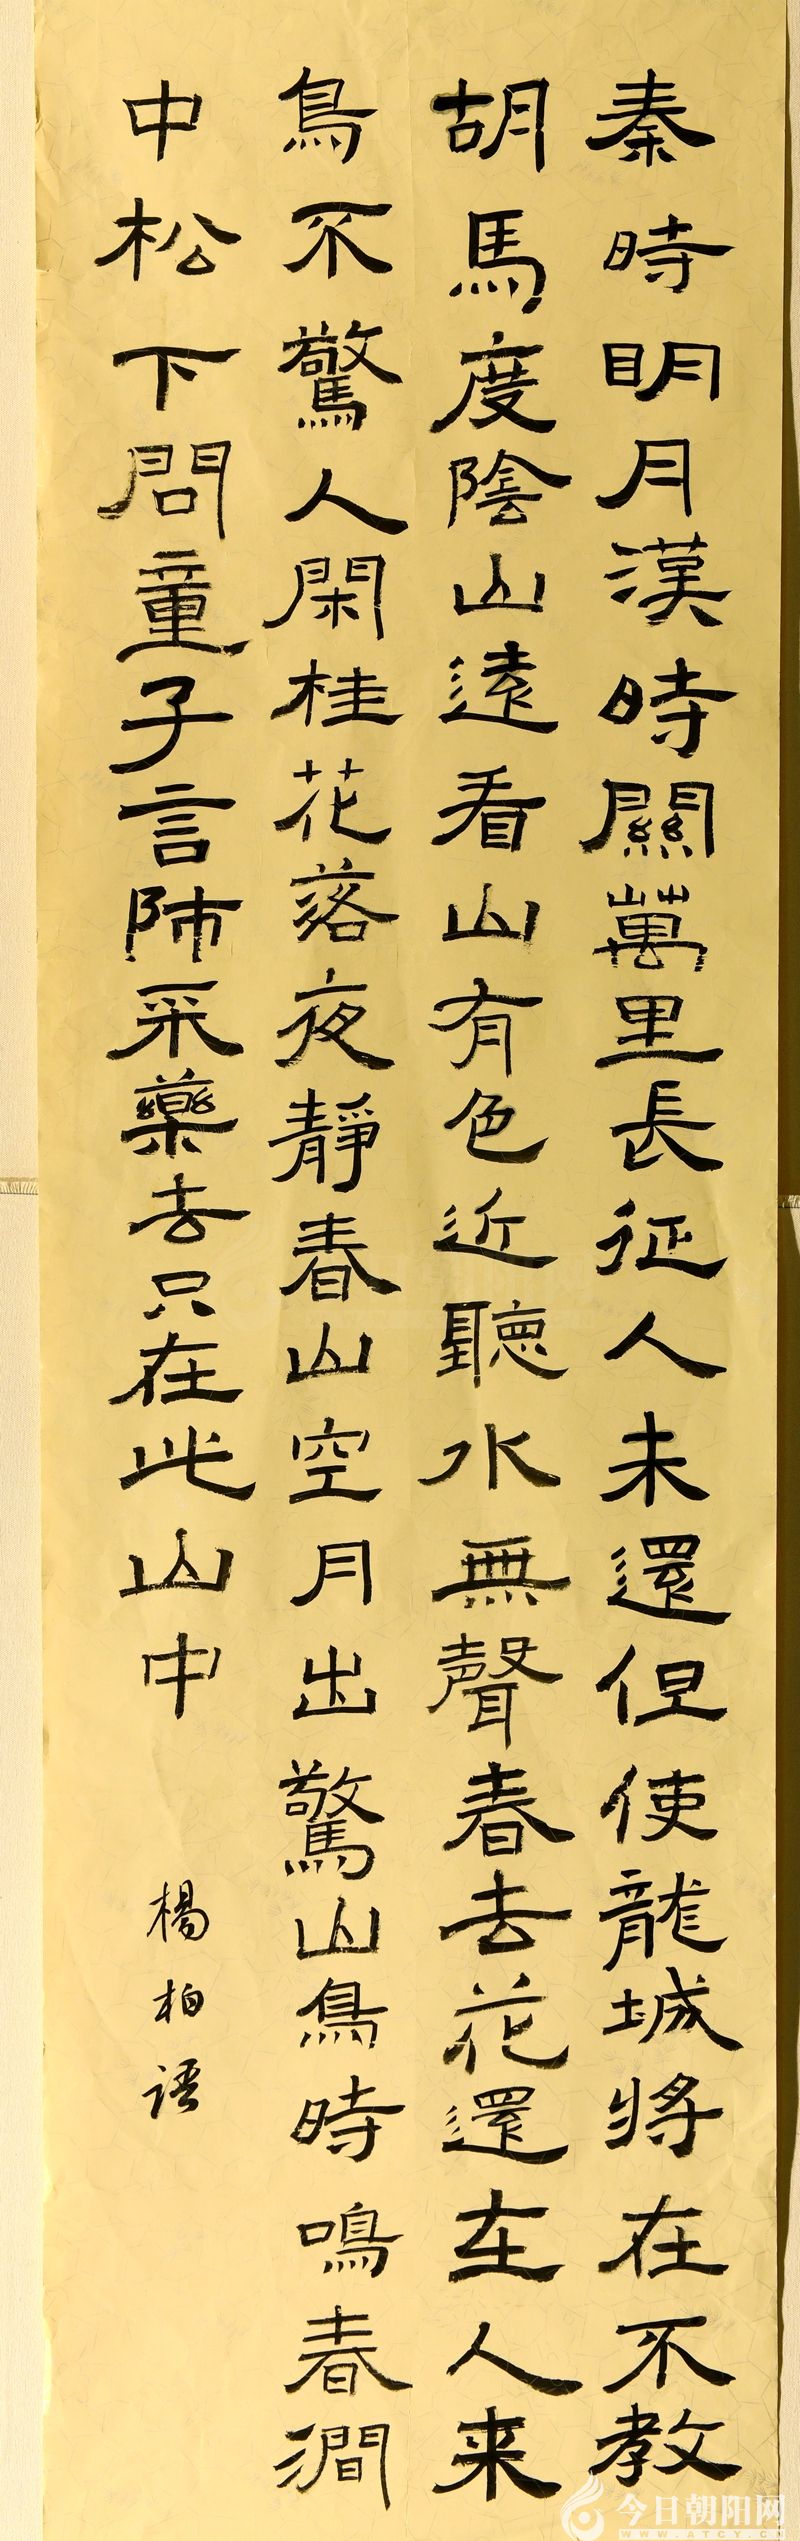 秦時明月漢時關萬里長征人未還但使龍城將在不教
胡馬度陰山遠看山有色近聽水無聲春去花還在人来
鳥不驚人閑桂花落夜靜春山空月出驚山鳥時鳴春澗
中松下問童子言師采藥去只在此山中
楊柏語
今日朝阳网
WWW.ATCY.CN